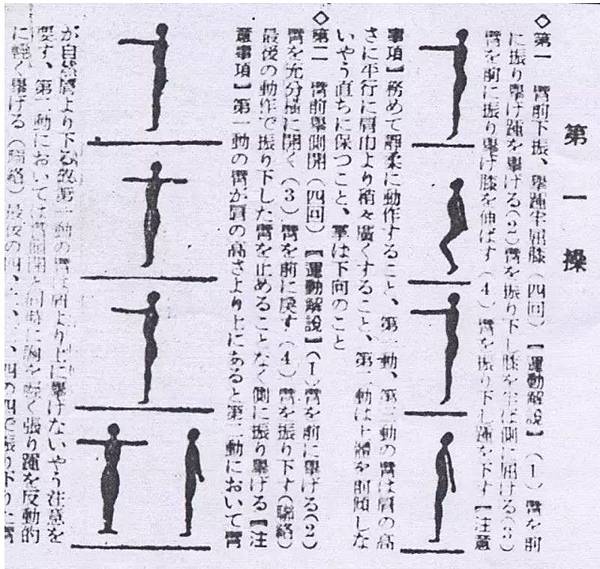 第一操
◇第一 臂前下振、擧踵半屈膝(四回)【運動解說】(1)臂を前
に振り擧げ踵を擧げる(2)臂を振り下し膝を半ば側に屈げる(3)
臂を前に振り擧げ膝を伸ばす(4)臂を振り下し踵を下す【注意
事項】務めて輕柔に動作すること、第一動、第三動の臂は肩の高
さに平行に肩巾より稍々廣くすること、第二動は上體を前傾しな
いやう直ちに保つこと、掌は下向のこと
◇第二 臂前擧側開(四回)【運動解說】(1)臂を前に擧げる(2)
臂を充分橫に開く(3)臂を前に戾す(4)臂を振り下す(聯絡)
最後の動作で振り下した臂を止めることなく側に振り擧げる【注
意事項】第一動の臂が肩の高さより上にあると第二動において臂
が自然肩より下る故第一動の臂は肩より上に擧げないやう注意を
要す、第二動においては臂側開と同時に胸を輕く張り踵を反動的
に輕く擧げる(聯絡)最後の四、四の四で振り下りた臂